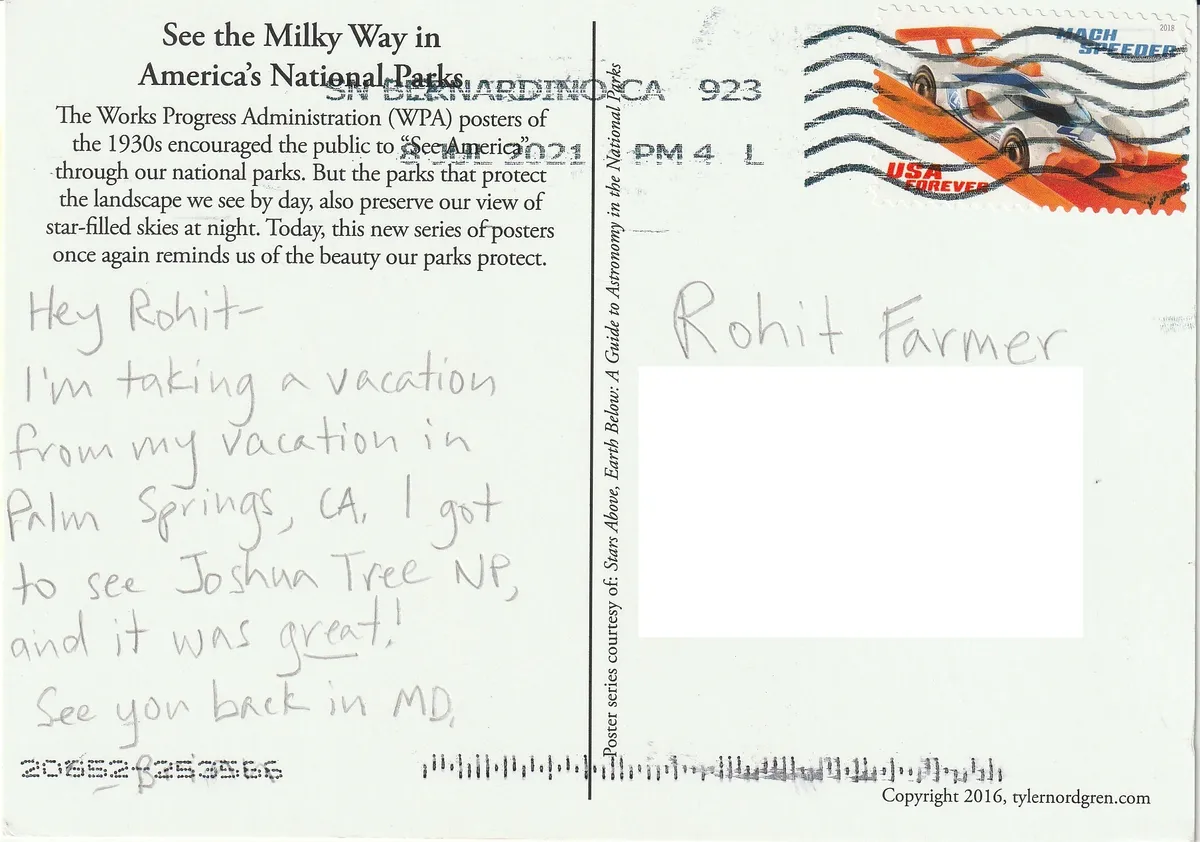 See the Milky Way in
America's National Parks
The Works Progress Administration (WPA) posters of
the 1930s encouraged the public to “See America”
through our national parks. But the parks that protect
the landscape we see by day, also preserve our view of
star-filled skies at night. Today, this new series of posters
once again reminds us of the beauty our parks protect.
Hey Rohit-
I'm taking a vacation
from my vacation in
Palm Springs, CA. I got
to see Joshua Tree NP,
and it was great!
See you back in MD,
Poster series courtesy of: Stars Above, Earth Below: A Guide to Astronomy in the National Parks
SN BERNARDINO CA 923
8 JUL 2021 PM 4 L
MACH
SPEEDER
2018
USA
FOREVER
Rohit Farmer
Copyright 2016, tylernordgren.com